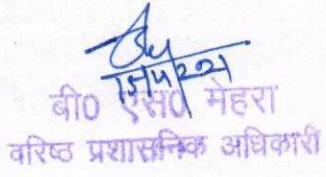 15/4/2021
बी0 एस0 मेहरा
वरिष्ठ प्रशासनिक अधिकारी